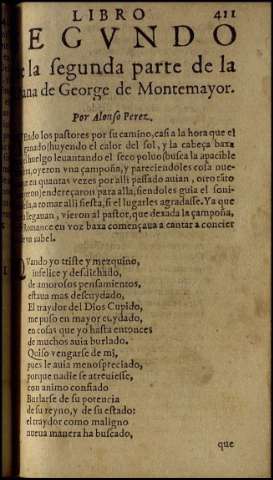 LIBRO 411
EGVNDO
la segunda parte de la
ana de George de Montemayor.
Por Alonso Perez.
Endo los pastores por su camino, casi a la hora que el
ganado (huyendo el calor del sol, y la cabeça baxa
huelgo leuantando el seco poluo) busca la apacible
oyeron vna çampoña, y pareciendoles cosa nue-
en quantas vezes por alli passado auian, otro tãto
endereçaron para alla, siendoles guia el soni-
a tomar alli siesta, si el lugar les agradasse. Ya que
llegauan, vieron al pastor, que dexada la çampoña,
Romance en voz baxa començaua a cantar a concier
rabel.
Vando yo triste y mezquino,
infelice y desdichado,
de amorosos pensamientos,
estaua mas descuydado,
El traydor del Dios Cupido,
me puso en mayor cuydado,
en cosas que yo hasta entonces
de muchos auia burlado.
Quiso vengarse de mi,
pues le auia menospreciado,
porque nadie se atreuiesse,
con animo confiado
Burlarse de su potencia
de su reyno, y de su estado:
el traydor como maligno
nueua manera ha buscado,
que